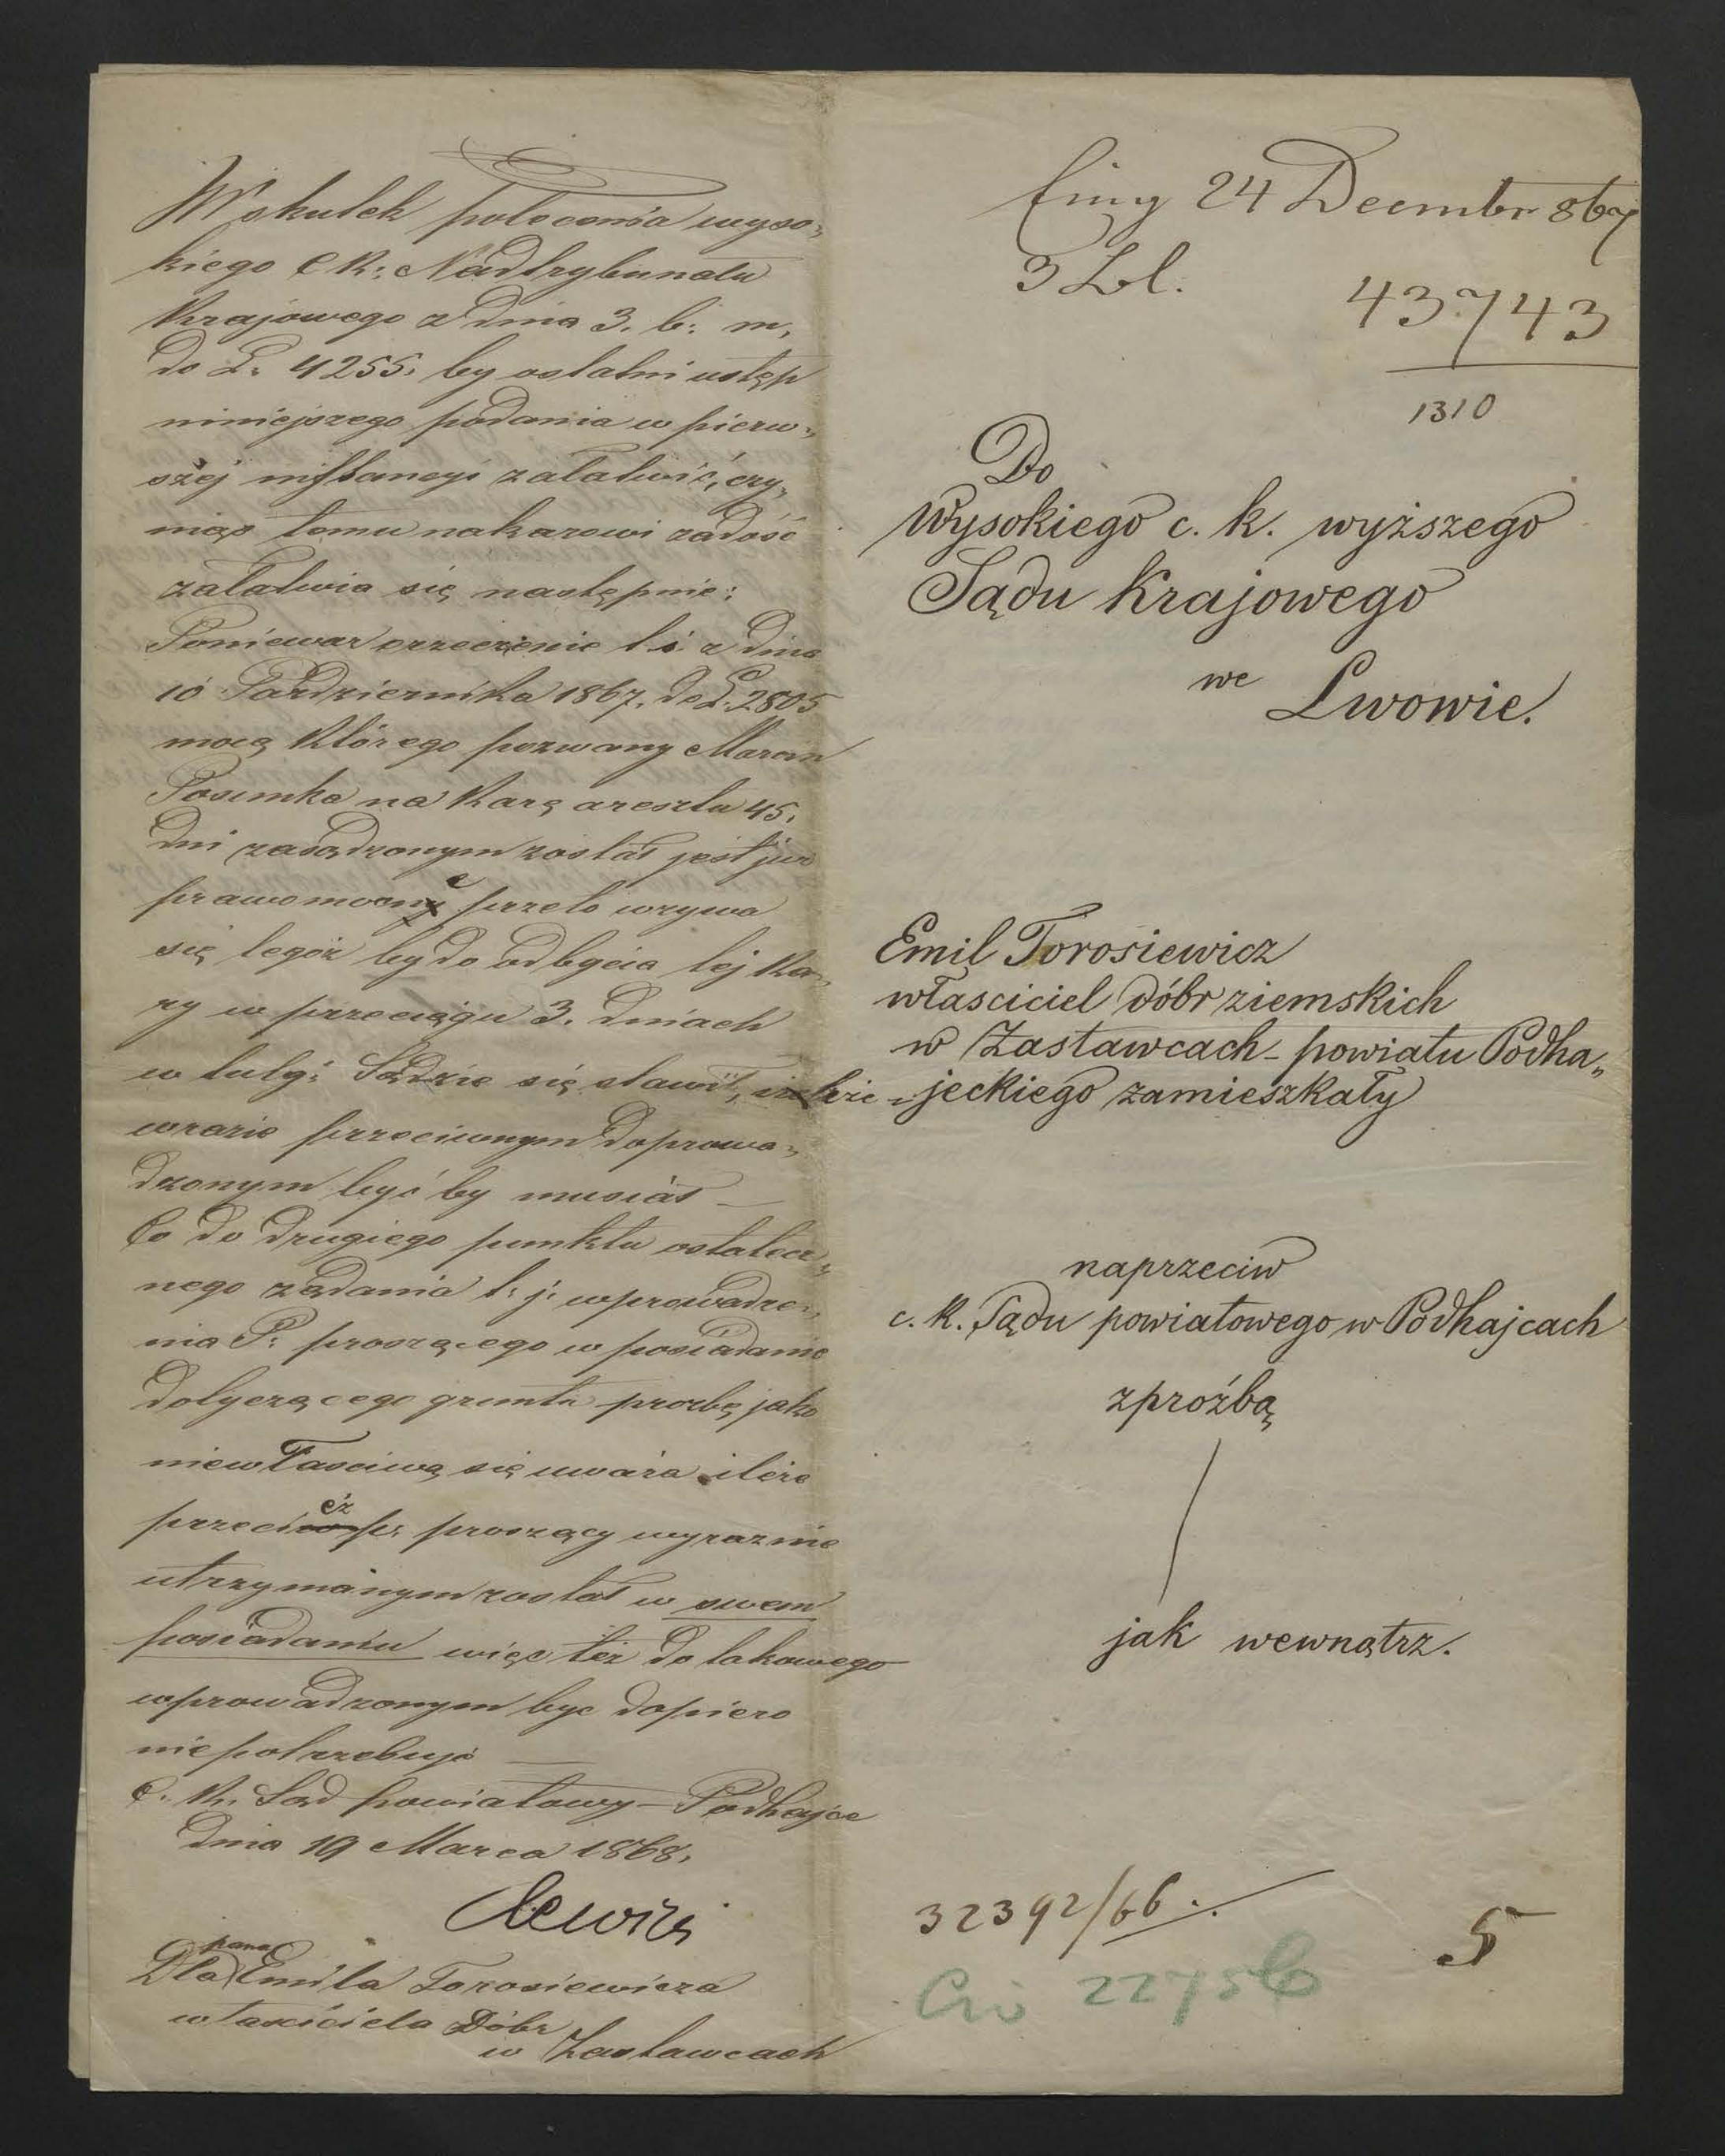 W skutek polecenia wyso„
kiego C K: Nadtrybunatu
Krajowego z dnia 3. b: m,
do L. 4255. by ostatni ustęp
niniejszego podania w pierw„
szej instancyi załatwić, czy„
niąc temu nakazowi zadość
załatwia się następnie:
Poniewaz orzeczenie t. s. z dnia
10 Pazdziernika 1867. do L. 2805
mocą którego pozwany
na karę aresztu 45.
dni zasądzonym został jest juz
prawomocne przeto wzywa
się tegoż by do odbycia tej ka„
ry w przeciągu 3. dniach
w tutg: Sądzie się stawił, ile że
w razie przeciwnym doprowa„
dzonym być by musiał —
Co do drugiego punktu ostatecz„
nego żądania t. j. wprowadze„
nia P. proszącego w posiadanie
dotyczącego gruntu prozbę jako
niewłasciwą się uważa ileże
przecież p. proszący wyraznie
utrzymanym został w swem
posiadaniu więc też do takowego
wprowadzonym byc dopiero
niepotrzebuje —
C. K. Sąd powiatowy – Podhajce
dnia 19 Marca 1868.
Dla pana Emila Torosiewicza
własciciela Dóbr
w Zastawcach
24 Decembr 867
3 Zbl.
43743
1310
Do
Wysokiego c. k. wyższego
Sądu Krajowego
we Lwowie.
Emil Torosiewicz
własciciel dóbr ziemskich
w Zastawcach – powiatu Podha„
jeckiego zamieszkały
naprzeciw
c. k. Sądu powiatowego w Podhajcach
z proźbą
jak wewnątrz.
32392/66
5
22756